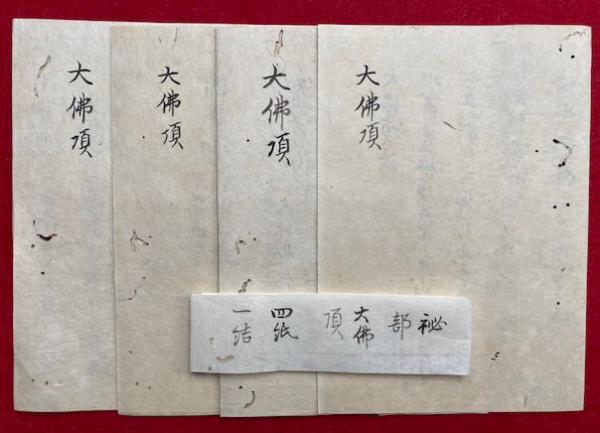 大佛頂
大佛頂
大佛頂
大佛頂
秘
部
大佛
頂
四紙
一結